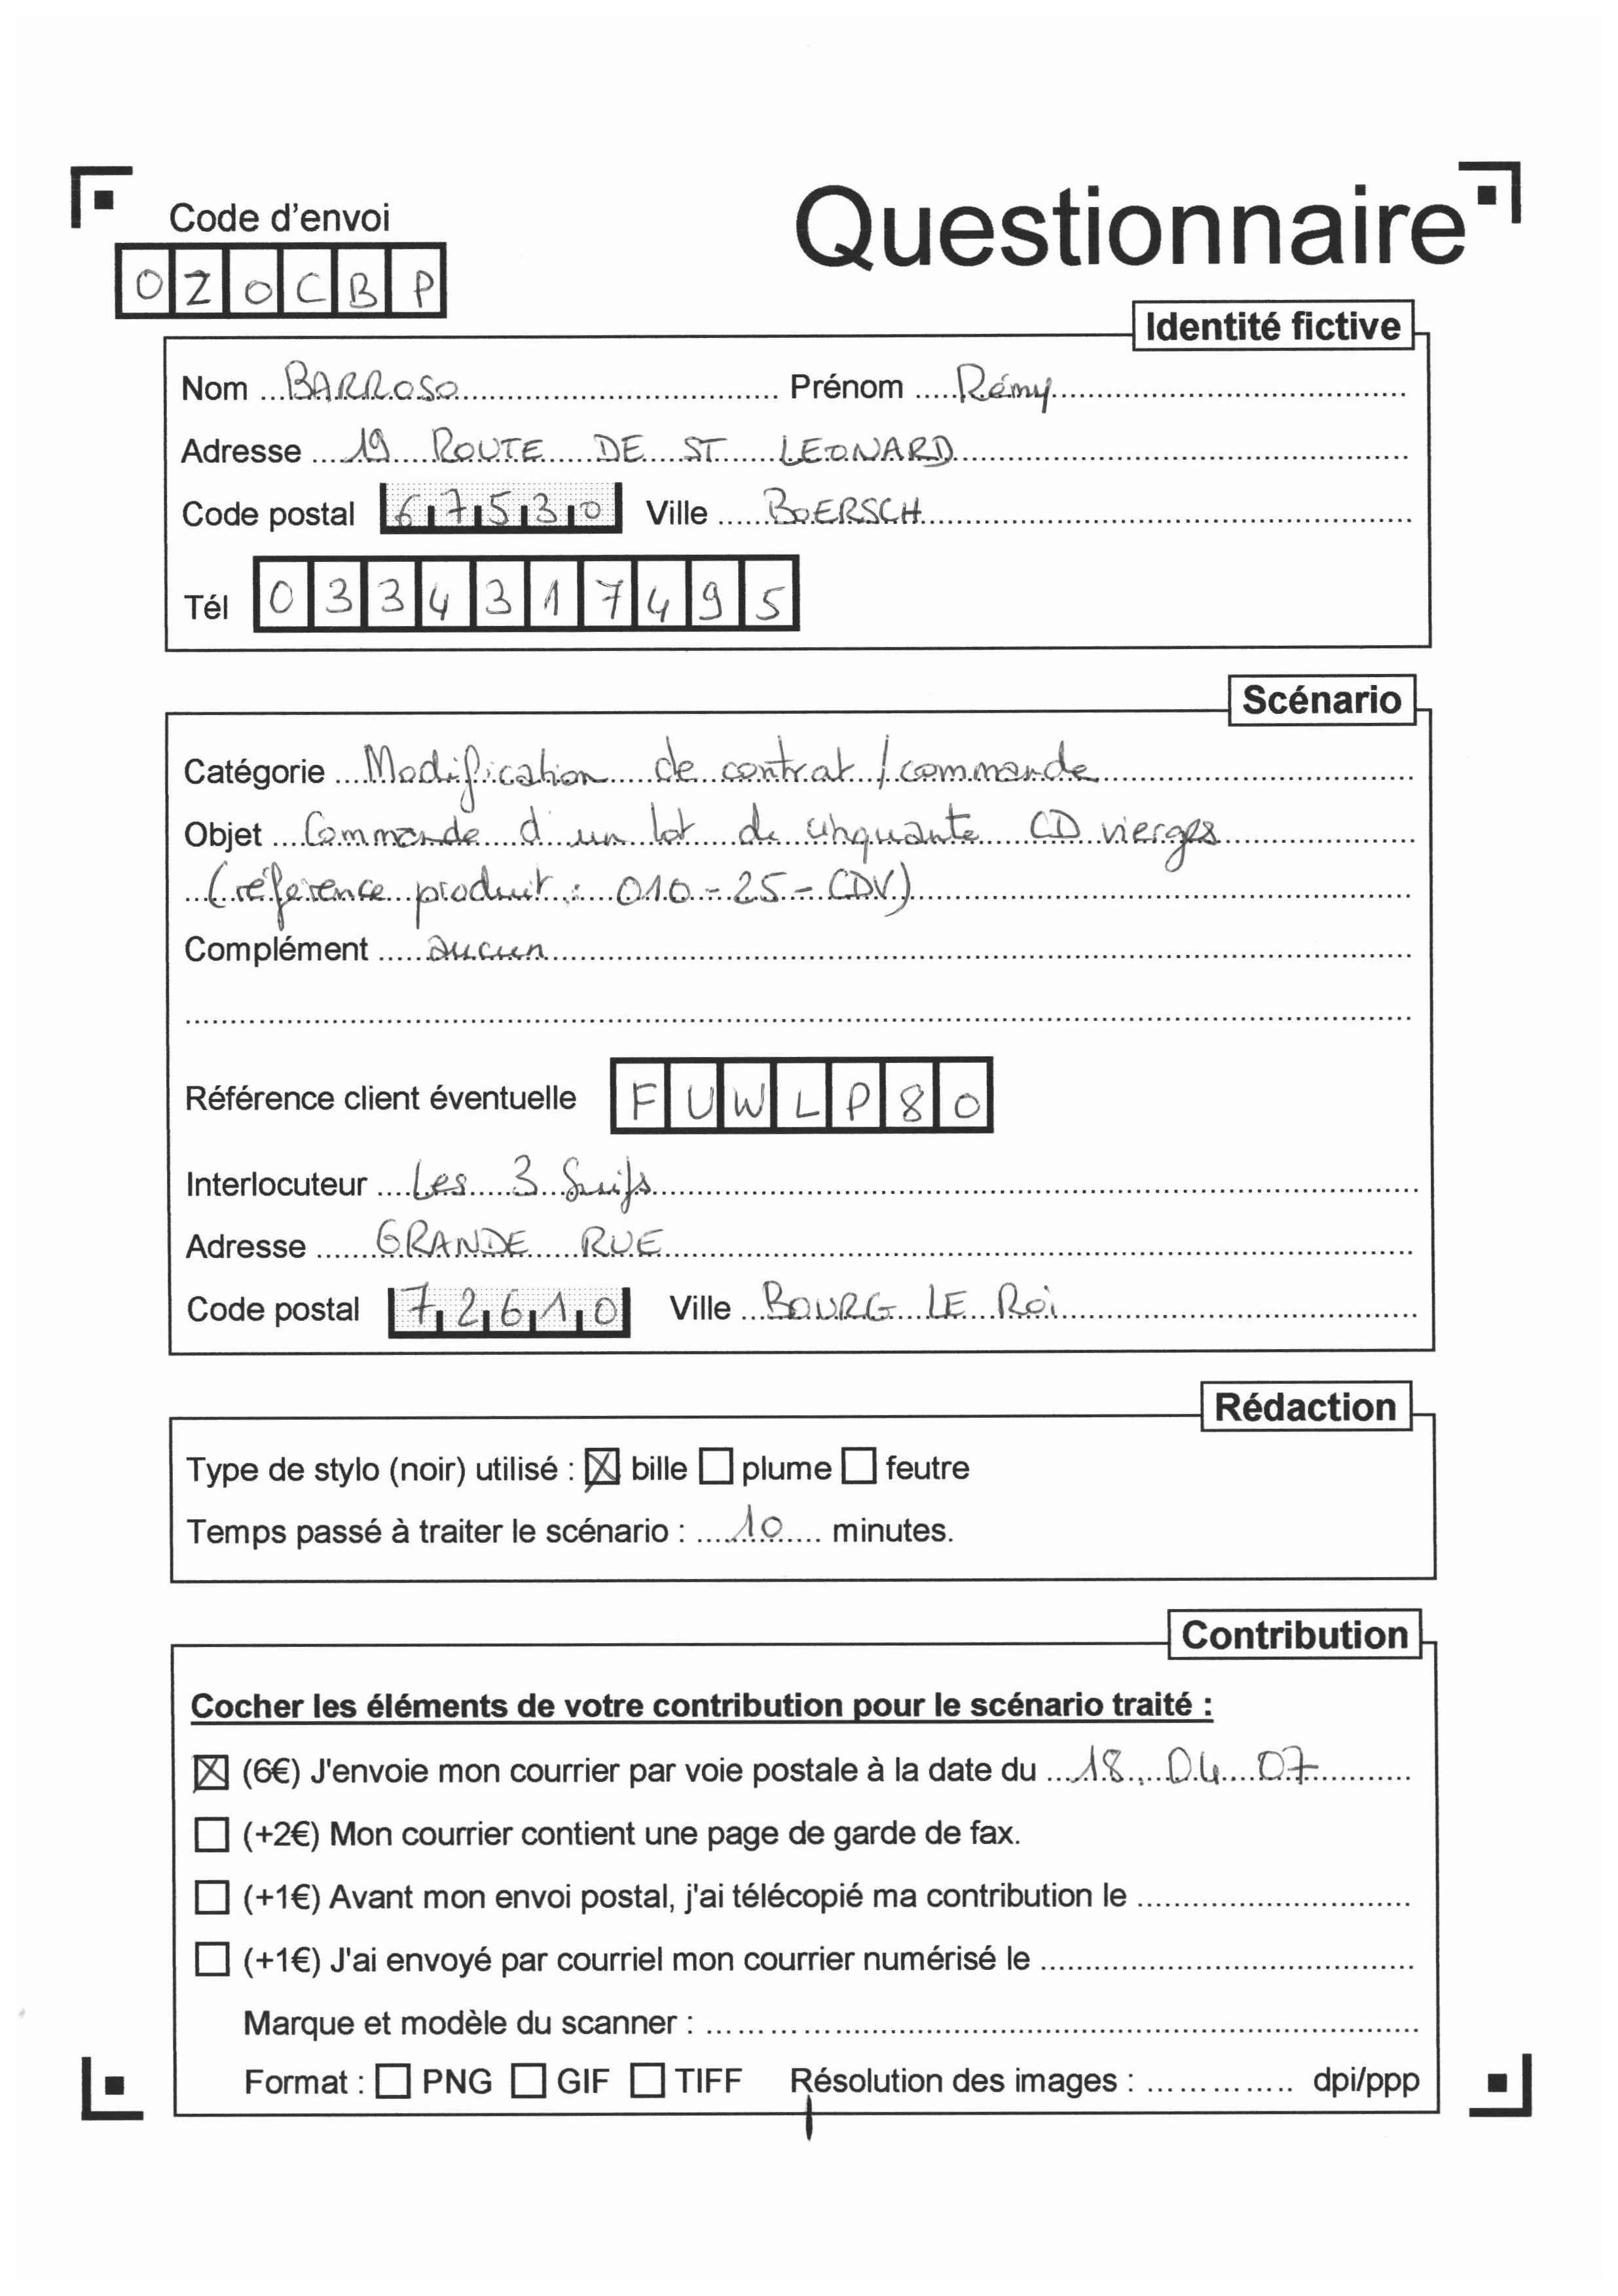 Questionnaire
Code d'envoi
OZOCBP
Identité fictive
Nom BARROSO Prénom Rémy
Adresse 19 ROUTE DE ST LEONARD
Code postal 67530 Ville BOERSCH
Tél 0334317495
Scénario
Catégorie Modification de contrat / commande
Objet Commande d'un lot de cinquante CD vierges
(référence produit : 010-25-CDV)
Complément aucun
Référence client éventuelle FUWLP80
Interlocuteur Les 3 Suifs
Adresse GRANDE RUE
Code postal 72610 Ville BOURG LE Roi
Rédaction
Type de stylo (noir) utilisé : ☒ bille ☐ plume ☐ feutre
Temps passé à traiter le scénario : 10 minutes.
Contribution
Cocher les éléments de votre contribution pour le scénario traité :
☒ (6€) J'envoie mon courrier par voie postale à la date du 18.04.07
☐ (+2€) Mon courrier contient une page de garde de fax.
☐ (+1€) Avant mon envoi postal, j'ai télécopié ma contribution le
☐ (+1€) J'ai envoyé par courriel mon courrier numérisé le
Marque et modèle du scanner :
Format : ☐ PNG ☐ GIF ☐ TIFF Résolution des images : dpi/ppp